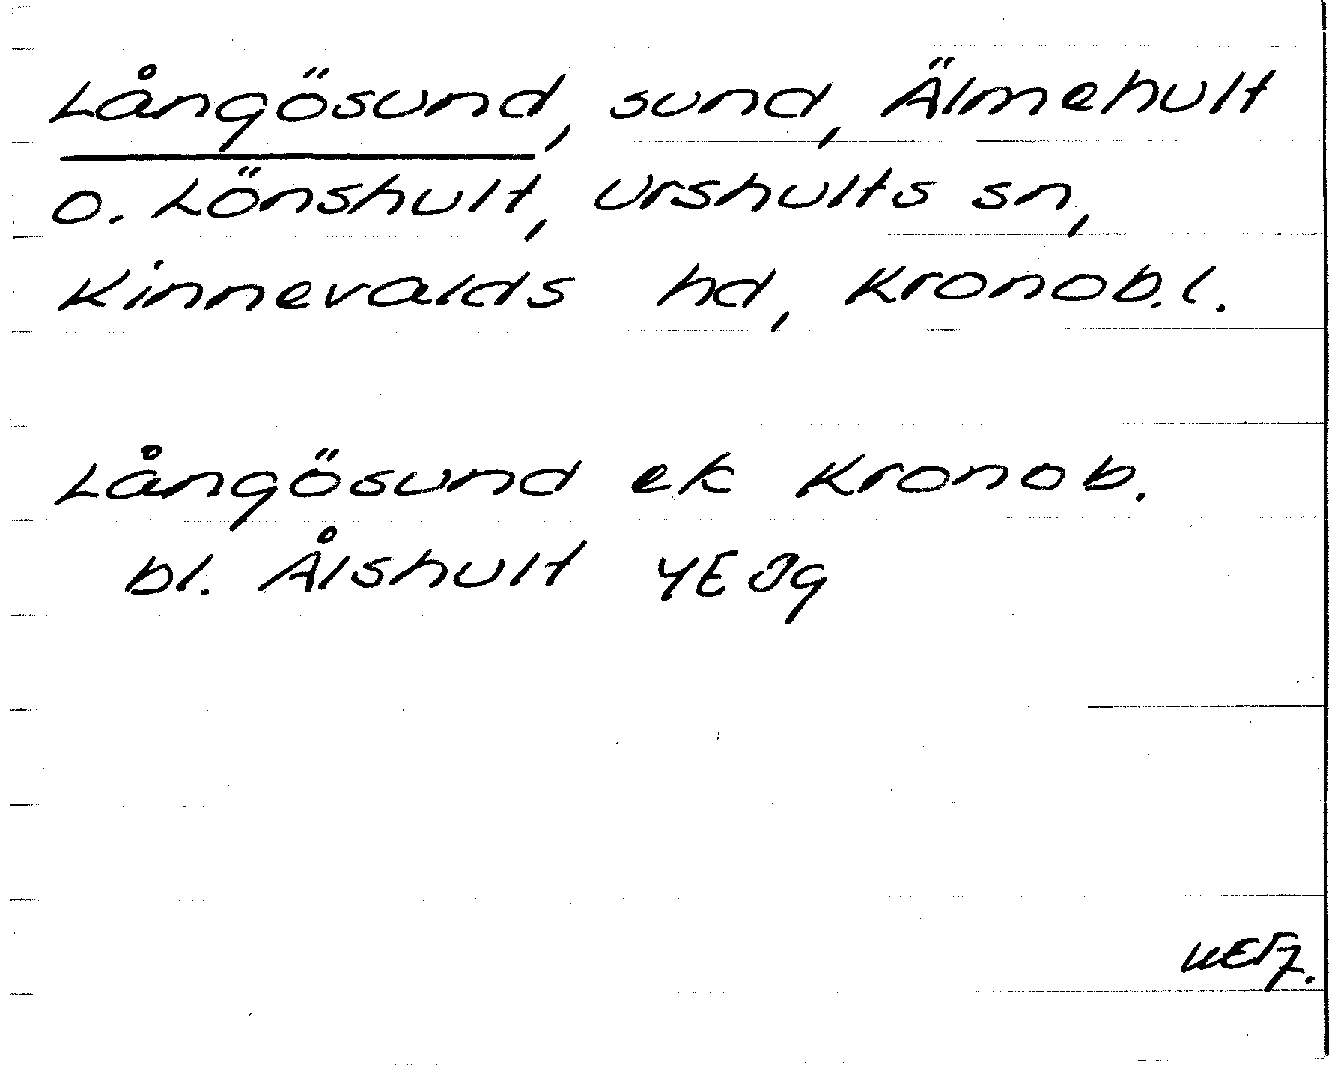 Långösund, sund, Älmehult
o. Lönshult, Urshults sn,
Kinnevalds hd, Kronob.l.
Långösund ek Kronob.
bl. Ålshult 4E